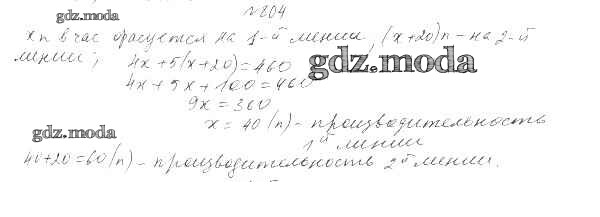 №804
gdz.moda
x п в час фасуется на 1-й линии, (x+20)п - на 2-й
линии; 4x+5(x+20)=460
gdz.moda
4x+5x+100=460
9x=360
x=40(п) - производительность
1й линии
gdz.moda
40+20=60(п) - производительность 2й линии.